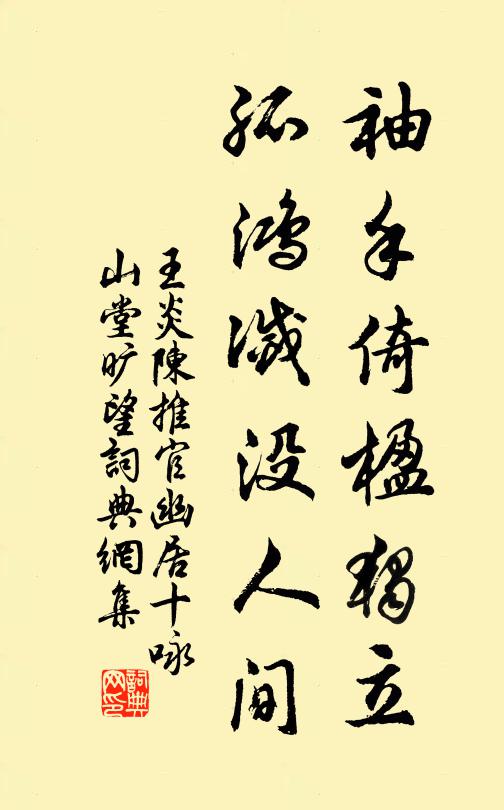 袖手倚楹獨立
孤鴻滅没人间
王炎陳推官幽居十咏
山堂旷望詞典網集
詞典网印